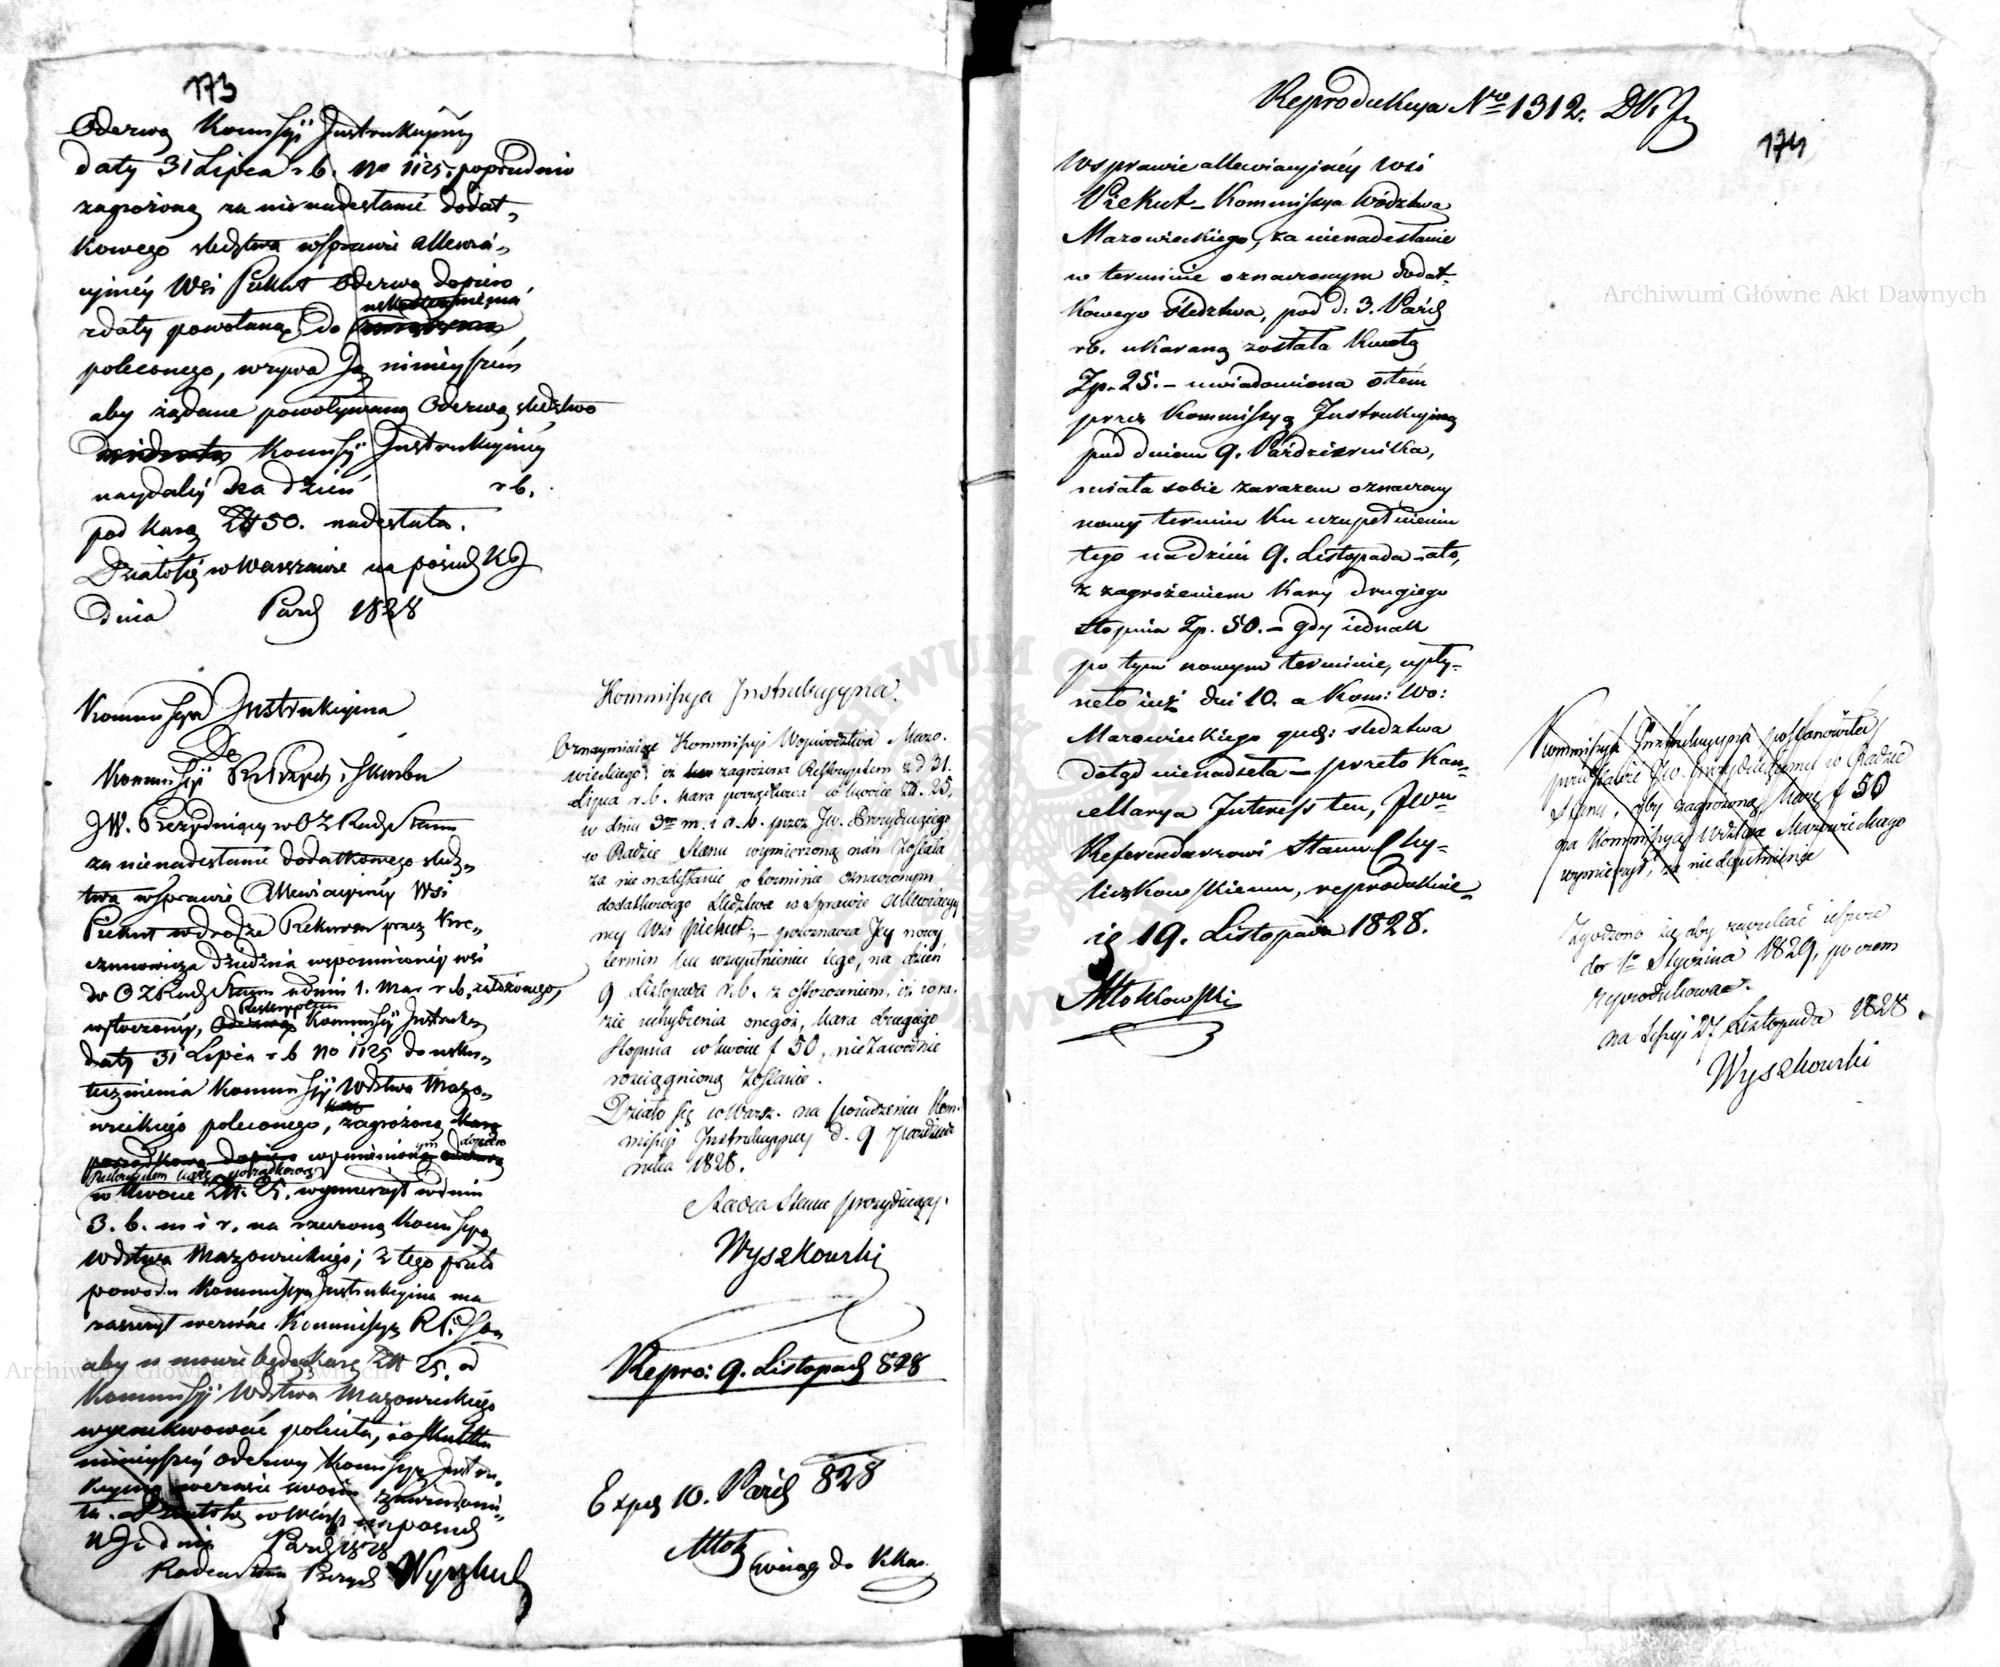 173
Odezwą Kommissyi Instrukcyiney
daty 31 Lipca r. b. No 1125. poprzednio
zagrożoną za nienadesłanie dodat,,
kowego śledztwa w sprawie allewia,,
cyiney Wsi Piekut Odezwą dopiero
z daty powołaną, do uskutecznienia
poleconego, wzywa Ją ninieyszem
aby żądane powoływaną Odezwą śledztwo
Kommissyi Instrukcyiney
naydaley na dzień r. b.
pod karą Zł 50. nadesłała.
Działo się w Warszawie na posied. K J
Dnia Paźd 1828
Kommissya Instrukcyina
Do
Kommissyi R. Przych. i Skarbu
JW. Prezyduiący w O Z Rady Stanu
za nienadesłanie dodatkowego śledz,,
twa w sprawie Allewiacyiney Wsi
Piekut w drodze Rekursu przez Kre,,
czmowicza Dziedzica wspomnioney wsi
do O Z Rady Stanu w dniu 1. Mar. r. b. założonego,
wytoczoney, Reskryptem Kommissyi Instrukcy
daty 31 Lipca r. b No 1125 do usku,,
tecznienia Kommissyi Wdztwa Mazo,,
wieckiego poleconego, zagrożoną
w kwocie Zł. 25. wymierzył w dniu
3. b. m i r. na rzeczoną Kommissyą
Wdztwa Mazowieckiego; z tego przeto
powodu Kommissya Instrukcyina ma
zaszczyt wezwać Kommissyą R. P. i Sk.
aby w mowie będącą karę Zł 25. od
Kommissyi Wdztwa Mazowieckiego
wyexekwować poleciła, i o skutku
ninieyszey Odezwy Kommissyą Instru,,
kcyiną w czasie swoim zawiadomi,,
ła. Działo się w Warsz. na posied
K J. dnia Paźd 1828
Radca Stanu Prezyd. Wyszkowski
Kommissya Instrukcyyna.
Oznaymuiąc Kommissyi Woiewództwa Mazo.
wieckiego, iż zagrożona Reskryptem z d 31.
Lipca r. b. kara porządkowa w kwocie Zł. 25,
w dniu 3m m. i r. b. przez JW. Prezyduiącego
w Radzie Stanu wymierzoną nań została
za nie nadesłanie w terminie oznaczonym
dodatkowego śledztwa w sprawie allewiacyy
ney Wsi Piekut; – przeznacza Jey nowy
termin ku uzupełnieniu tego, na dzień
9 Listopada r. b. z ostrzeżeniem, iż w ra.
zie uchybienia onegoż, kara drugiego
stopnia w kwocie f 50, nie zawodnie
rozciągnioną zostanie.
Działo się w Warsz. na posiedzeniu Kom.
missyi Instrukcyyney d. 9 Paździer
nika 1828.
Radca Stanu prezyduiący.
Wyszkowski
Repro: 9. Listopad 828
Exped 10. Paźd 828
Młok
Reprodukcya Nro 1312. DK. J
174
W sprawie allewiacyinéy Wsi
Piekut – Kommissya Wództwa
Mazowieckiego, za nienadesłanie
w terminie oznaczonym dodat-
kowego śledztwa, pod d: 3. Paźd
rb. ukaraną została kwotą
Zp. 25. – uwiadomiona o tém
przez Kommissyą Instrukcyiną
pod dniem 9. Października,
miała sobie zarazem oznaczony
nowy termin ku uzupełnieniu
tego na dzień 9. Listopada – a to,
z zagrożeniem kary drugiego
stopnia Zp. 50. – gdy iednak
po tym nowym terminie, upły-
neło iuż dni 10. a Kom: Wo:
Mazowieckiego quest: śledztwa
dotąd nienadesła – przeto Kan-
cellarya Interess ten, JWu
Referendarzowi Stanu Chy-
liczkowskiemu, reprodukuie
ig 19. Listopada 1828.
Młokowski
Kommissya Instrukcyyna postanowiła
przedstawić JW. Prezyduiącemu w Radzie
Stanu, aby zagrożoną karę f 50
na Kommissyą Wdztwa Mazowieckiego
wymierzył, za niedopełnienie
Zgodzono się aby zaczekać ieszcze
do 1go Stycznia 1829, poczem
reprodukować.
na Sessyi 27 Listopada 1828.
Wyszkowski
Archiwum Główne Akt Dawnych
Archiwum Główne Akt Dawnych